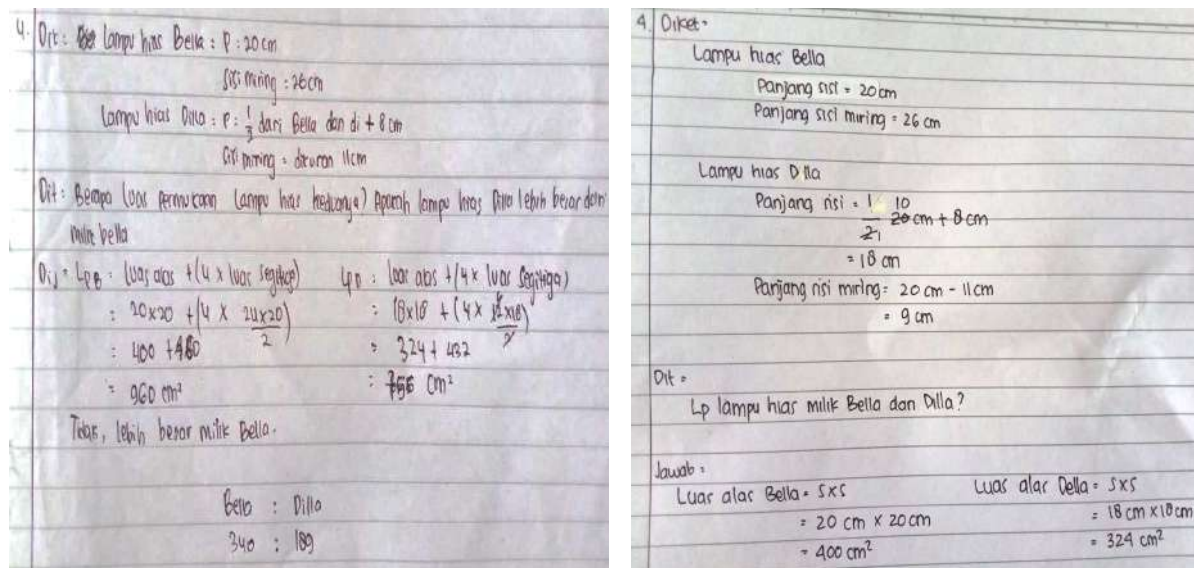 4. Dit : lampu hias Bella : P : 20 cm
sisi miring : 26 cm
Lampu hias Dilla : P : 1/3 dari Bella dan di + 8 cm
sisi miring = dikuran 11 cm
Dit : Berapa luas permukaan lampu hias keduanya? Apakah lampu hias Dilla lebih besar dari
milik bella
Dij = LPB : luas alas + (4 x luas segitiga)
: 20x20 + (4 x 24x20/2)
: 400 + 480
= 960 cm²
LPD : luas alas + (4 x luas segitiga)
: 18x18 + (4 x x18/2)
: 324 + 432
: 756 cm²
Tidak, lebih besar milik Bella.
Bella : Dilla
340 : 189
4. Diket =
Lampu hias Bella
Panjang sisi = 20 cm
Panjang sisi miring = 26 cm
Lampu hias Dilla
Panjang sisi = 1/2 1 10 20 cm + 8 cm
= 18 cm
Panjang sisi miring = 20 cm - 11 cm
= 9 cm
Dit =
Lp lampu hias milik Bella dan Dilla?
Jawab :
Luas alas Bella = s x s
= 20 cm x 20 cm
= 400 cm²
Luas alas Della = s x s
= 18 cm x 18 cm
= 324 cm²